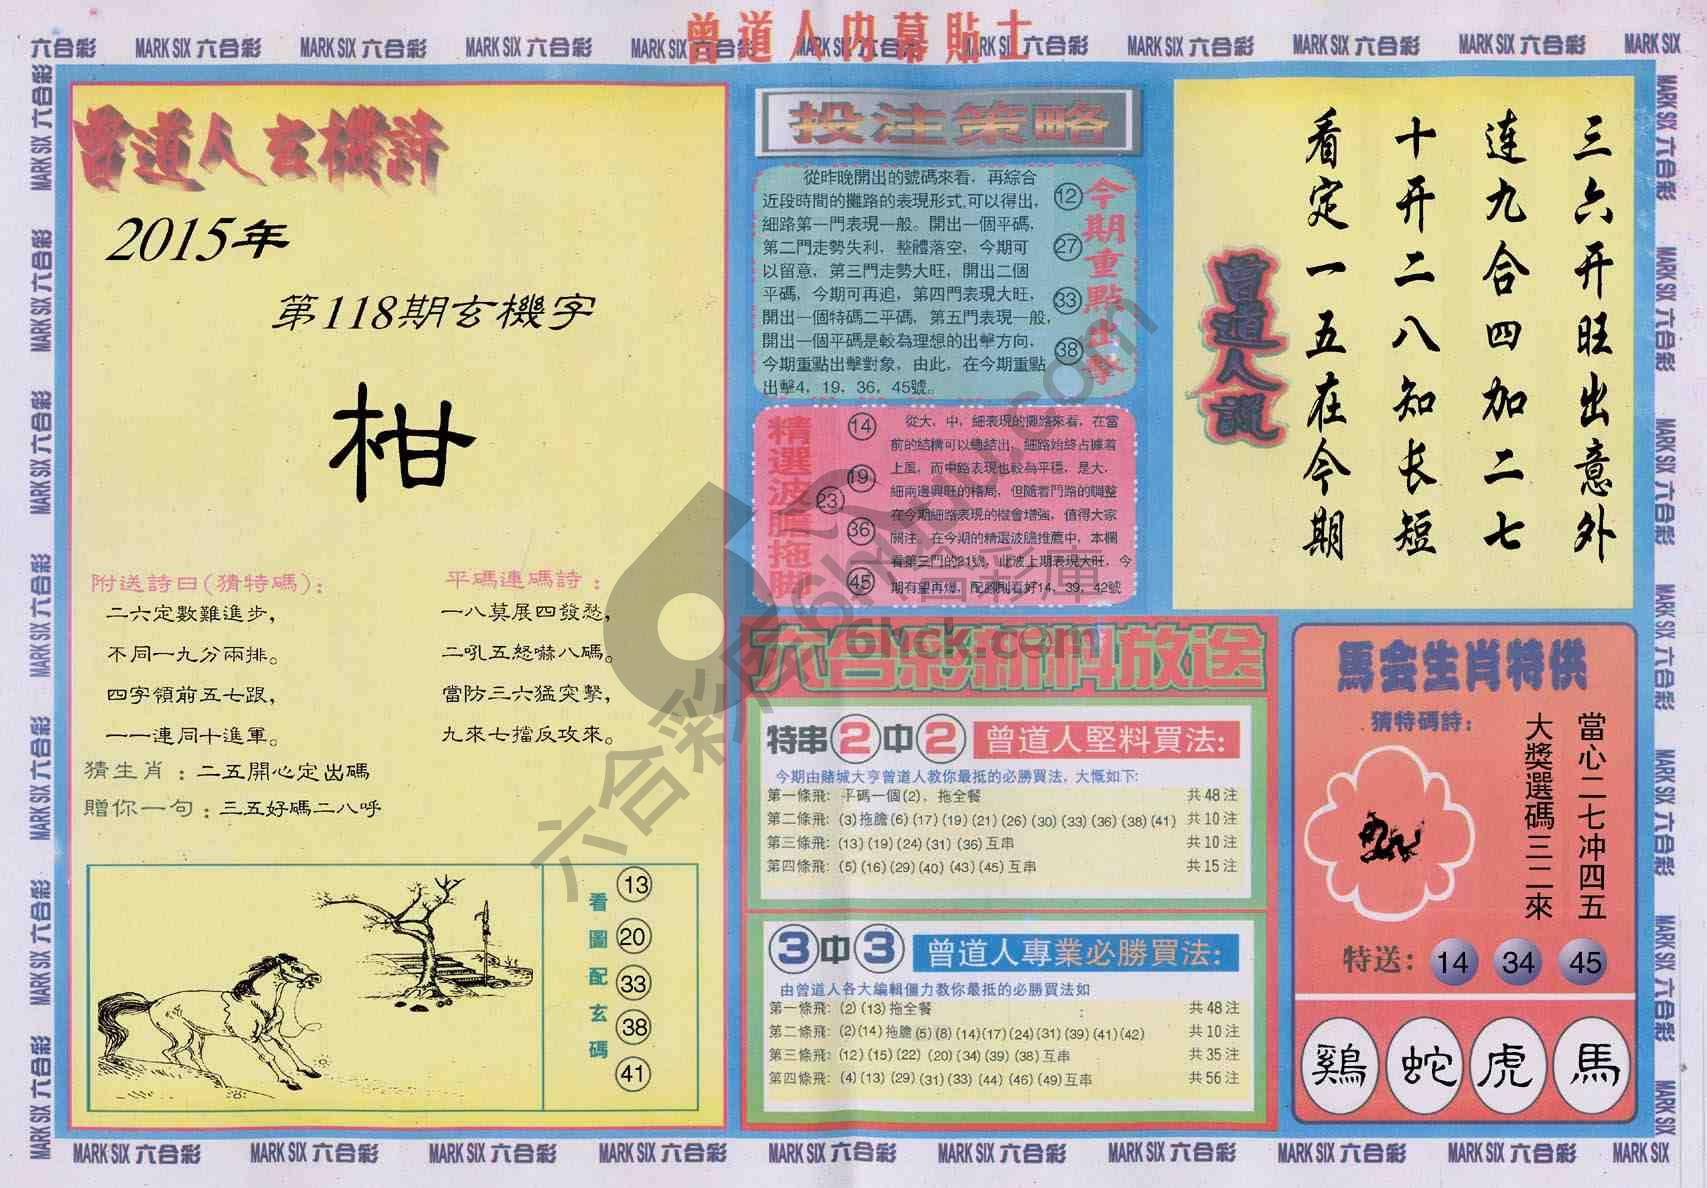 曾道人内幕貼士
六合彩 MARK SIX 六合彩 MARK SIX 六合彩 MARK SIX 六合彩 MARK SIX 六合彩 MARK SIX 六合彩 MARK SIX 六合彩 MARK SIX 六合彩 MARK SIX 六合彩 MARK SIX 六合彩 MARK SIX
曾道人玄機詩
2015年
第118期玄機字
柑
附送詩曰(猜特碼):
二六定數難進步,
不同一九分兩排。
四字領前五七跟,
一一連同十進軍。
平碼連碼詩:
一八莫展四發愁,
二吼五怒嚇八碼。
當防三六猛突擊,
九來七擋反攻來。
猜生肖:二五開心定出碼
贈你一句:三五好碼二八呼
看圖配玄碼
13
20
33
38
41
投注策略
從昨晚開出的號碼來看，再綜合
近段時間的攤路的表現形式,可以得出,
細路第一門表現一般。開出一個平碼,
第二門走勢失利，整體落空，今期可
以留意，第三門走勢大旺，開出二個
平碼，今期可再追，第四門表現大旺,
開出一個特碼二平碼，第五門表現一般,
開出一個平碼是較為理想的出擊方向,
今期重點出擊對象，由此，在今期重點
出擊4，19，36，45號。
今期重點出擊
12
27
33
38
精選波膽拖脚
14
19
23
36
45
從大，中，細表現的攤路來看，在當
前的結構可以總結出，細路始終占據着
上風，而中路表現也較為平穩，是大，
細兩邊興旺的格局，但隨着門路的調整
在今期細路表現的機會增強，值得大家
關注。在今期的精選波膽推薦中，本欄
看第三門的21號，此波上期表現大旺，今
期有望再爆，配腳則看好14，39，42號
六合彩新料放送
特串2中2 曾道人堅料買法:
今期由賭城大亨曾道人教你最抵的必勝買法，大慨如下:
第一條飛: 平碼一個(2)，拖全餐 共48注
第二條飛: (3)拖膽(6)(17)(19)(21)(26)(30)(33)(36)(38)(41) 共10注
第三條飛: (13)(19)(24)(31)(36)互串 共10注
第四條飛: (5)(16)(29)(40)(43)(45)互串 共15注
3中3 曾道人專業必勝買法:
由曾道人各大編輯僵力教你最抵的必勝買法如
第一條飛: (2)(13)拖全餐 : 共48注
第二條飛: (2)(14)拖膽(5)(8)(14)(17)(24)(31)(39)(41)(42) 共10注
第三條飛: (12)(15)(22)(20)(34)(39)(38)互串 共35注
第四條飛: (4)(13)(29)(31)(33)(44)(46)(49)互串 共56注
三六开旺出意外
连九合四加二七
十开二八知长短
看定一五在今期
曾道人說
馬会生肖特供
猜特碼詩:
當心二七冲四五
大獎選碼三二來
特送: 14 34 45
鷄 蛇 虎 馬
6hck.com
MARK SIX 六合彩 MARK SIX 六合彩 MARK SIX 六合彩 MARK SIX 六合彩 MARK SIX 六合彩 MARK SIX 六合彩 MARK SIX 六合彩 MARK SIX 六合彩 MARK SIX 六合彩 MARK SIX